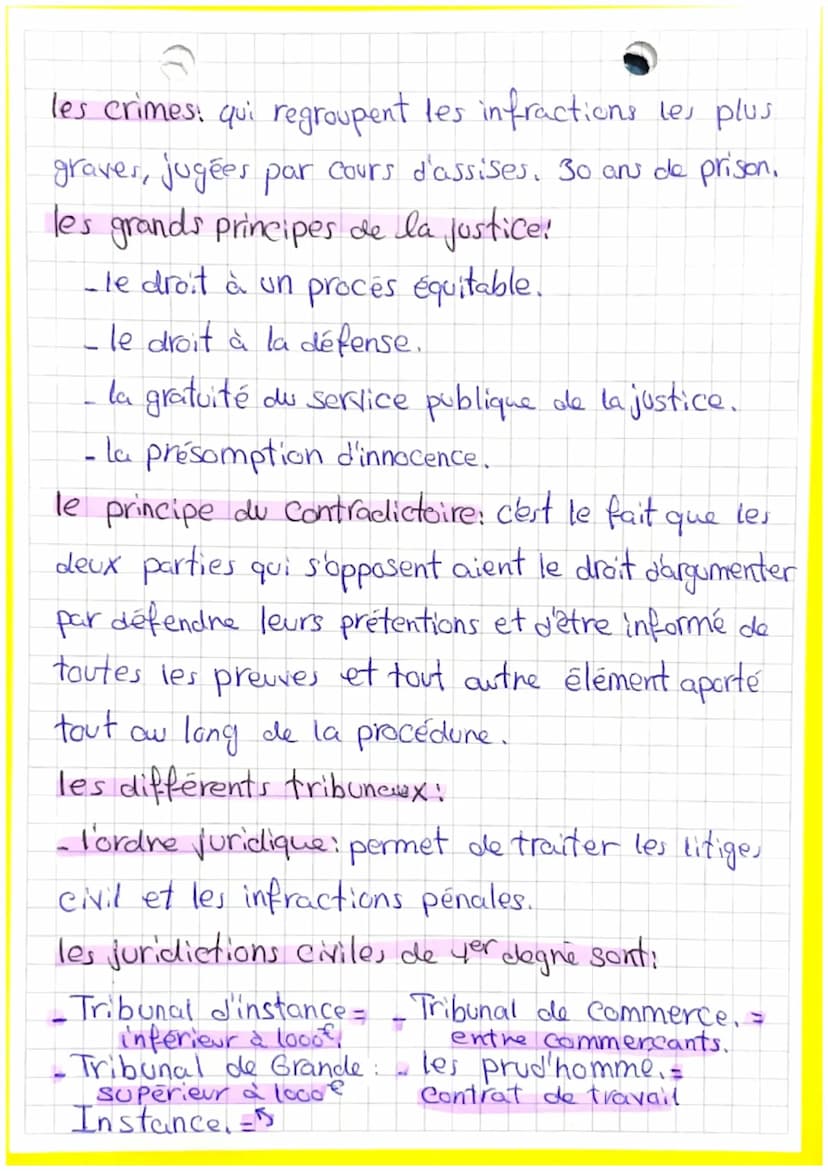 les crimes: qui regroupent les infractions les plus
graves, jugées par cours d'assises. 30 ans de prison.
les grands principes de la justice:
- le droit à un procès équitable.
- le droit à la défense.
- la gratuité du service publique de la justice.
- la présomption d'innocence.
le principe du contradictoire: c'est le fait que les
deux parties qui s'opposent aient le droit d'argumenter
par défendre leurs prétentions et d'être informé de
toutes les preuves et tout autre élément aporté
tout au long de la procédure.
les différents tribuneaux:
- l'ordre juridique: permet de traiter les litiges
civil et les infractions pénales.
les juridictions civiles de 1er degré sont:
- Tribunal d'instance =
inférieur à 1000€.
- Tribunal de Grande :
supérieur à 1000€
Instance. =
- Tribunal de commerce. =
entre commerçants.
- les prud'homme. =
contrat de travail